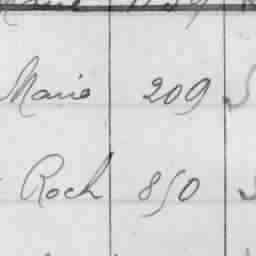 Marie 209
Roch 850